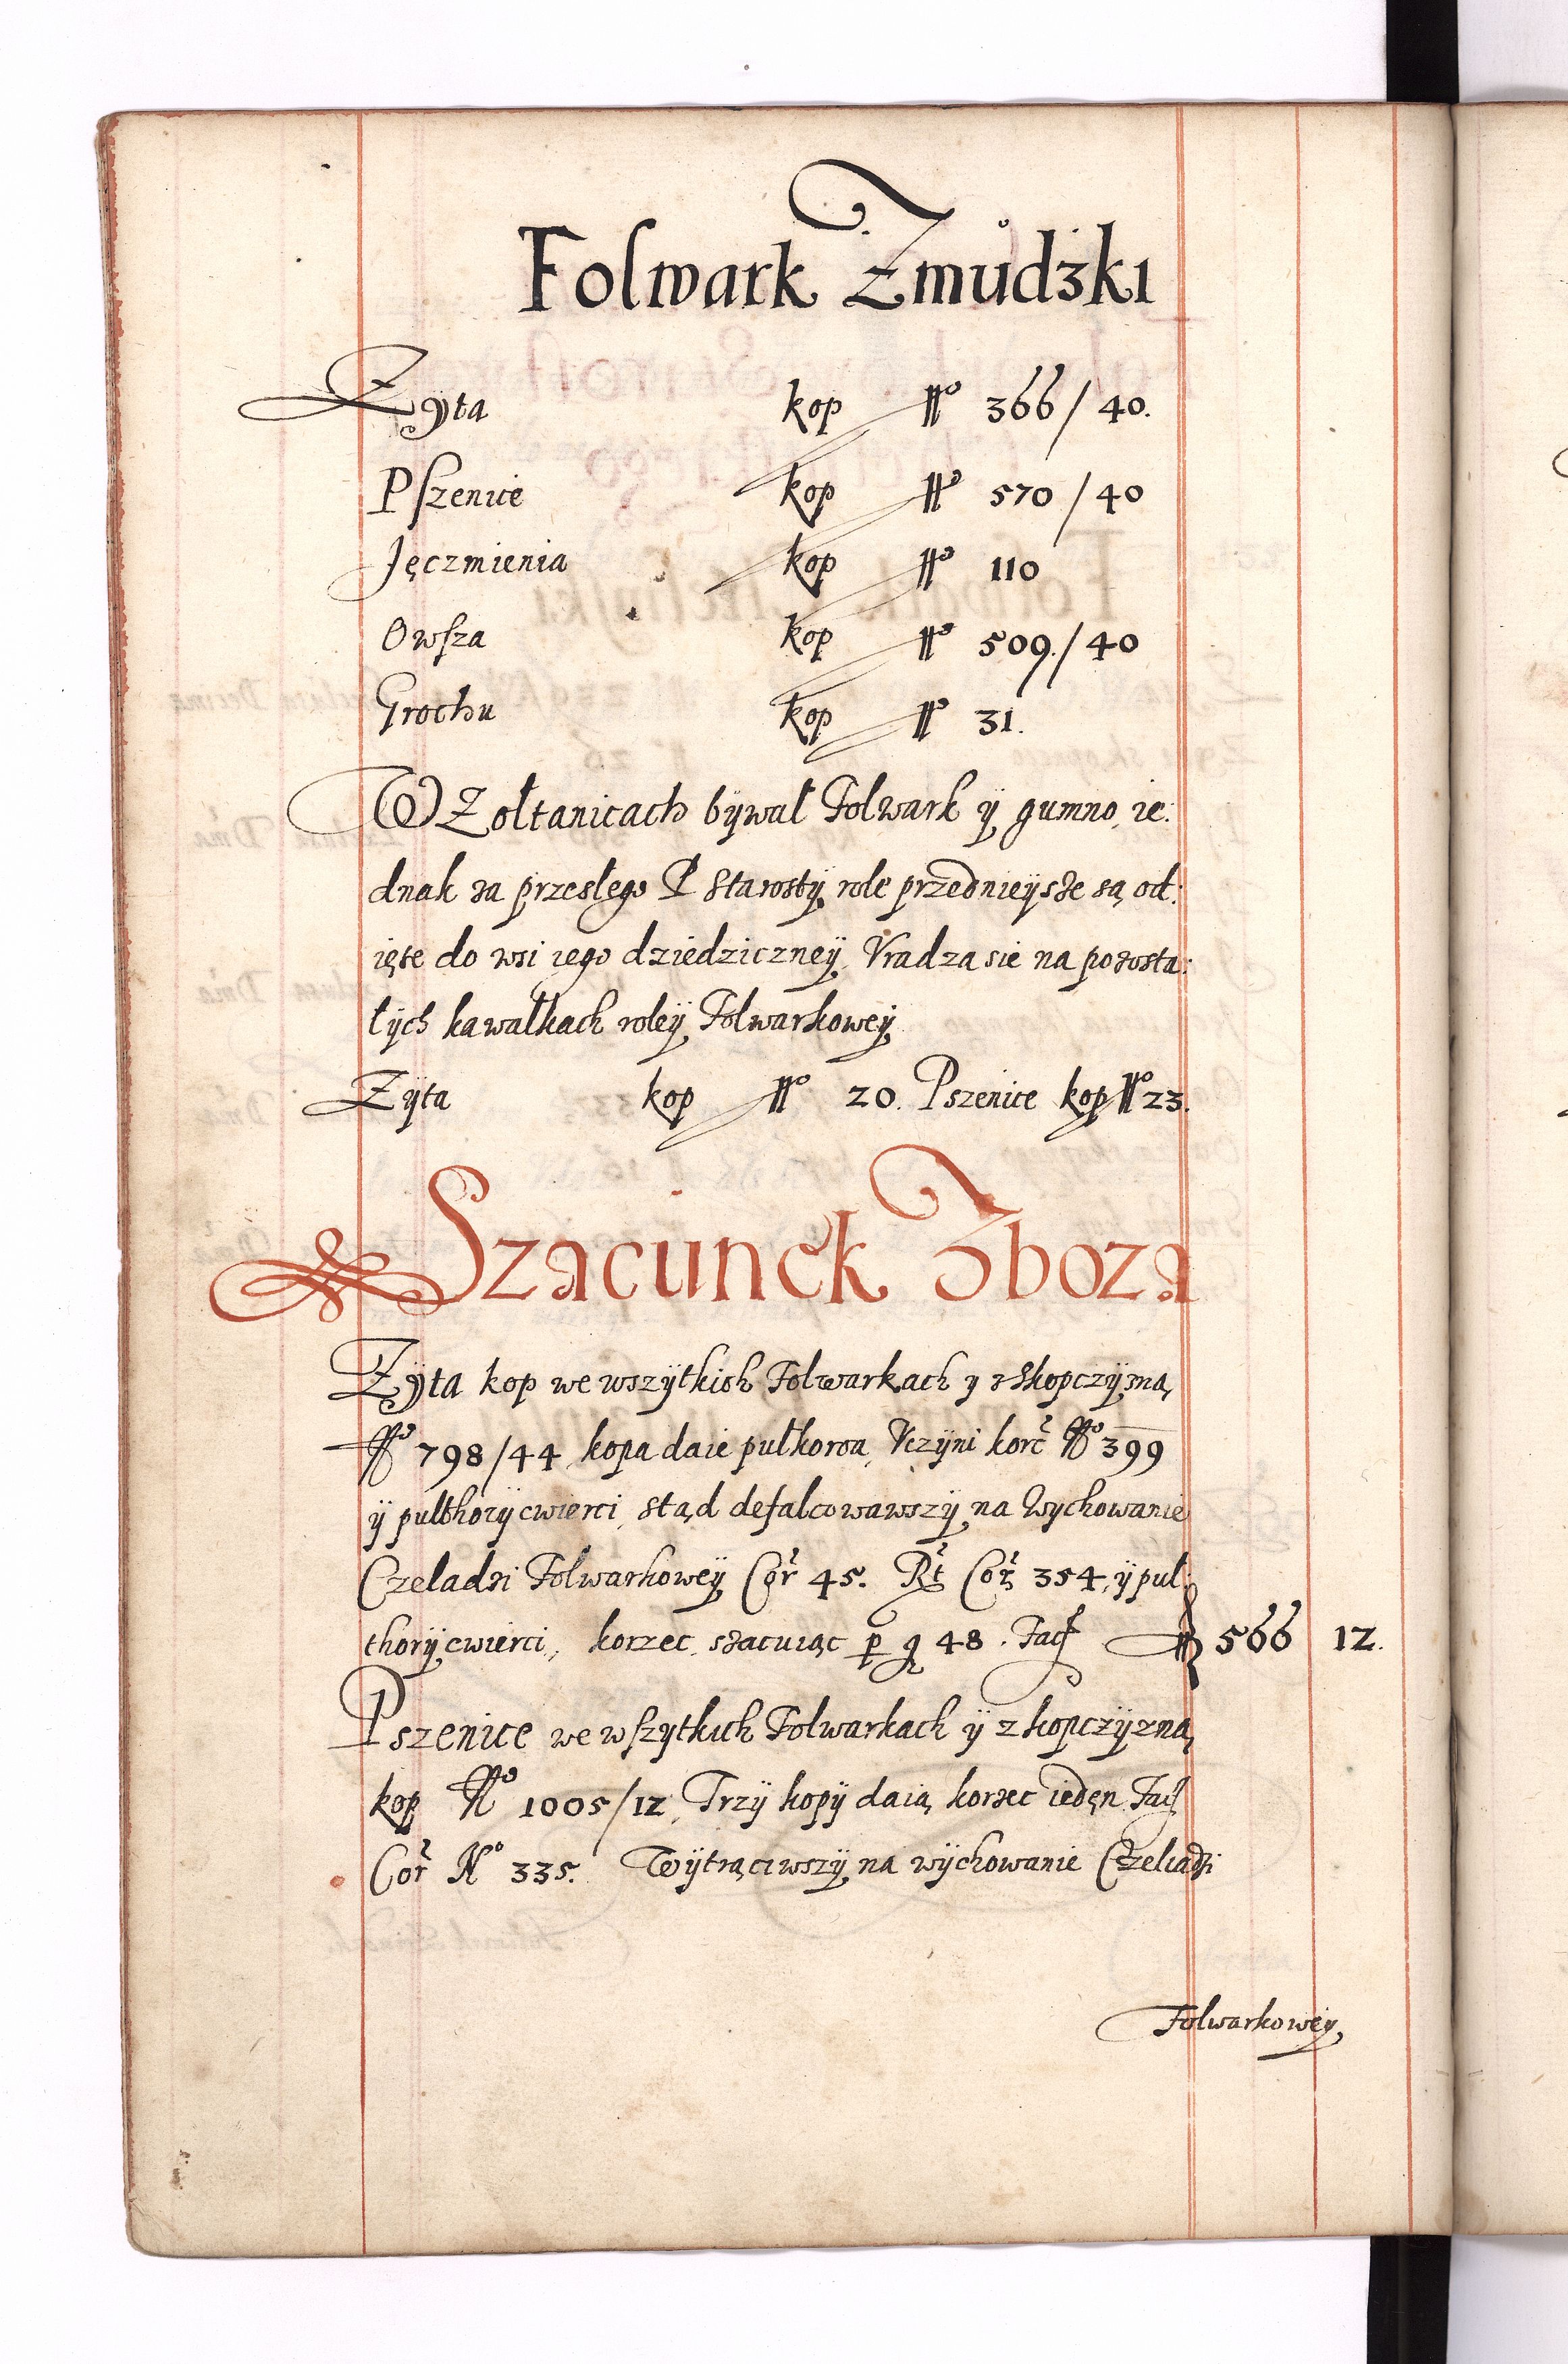 Folwark Zmudzki
Zyta kop No 366/40.
Pszenice kop No 570/40
Jęczmienia kop No 110
Owsza kop No 509./40
Grochu kop No 31.
W Zołtanicach bÿwał Folwark ÿ gumno, ie:
dnak za przeslego P Starostÿ role przednieÿsze są od:
ięte do wsi iego dziedziczneÿ, Vradza sie na pozosta:
łÿch kawałkach roleÿ Folwarkoweÿ
Zÿta kop No 20. Pszenice kop No 23.
Szacunek Zboza
Zÿta kop we wszÿtkich Folwarkach y z Skopczÿzną
No 798/44, kopa daie pułkorca, Vczÿni korc No 399
ÿ pułthorÿ cwierci, stąd defalcowawszÿ na Wychowanie
Czeladzi Folwarkoweÿ Cor 45. Rt Cor 354, ÿ puł
thorÿ cwierci, korzec szacuiąc p g 48. Facit 566 12.
Pszenice we wszytkich Folwarkach ÿ z kopczÿzną
kop No 1005/12, Trzÿ kopÿ daią korzec ieden Facit
Cor No 335. Wÿtrąciwszÿ na wÿchowanie Czeliadzi
Folwarkoweÿ